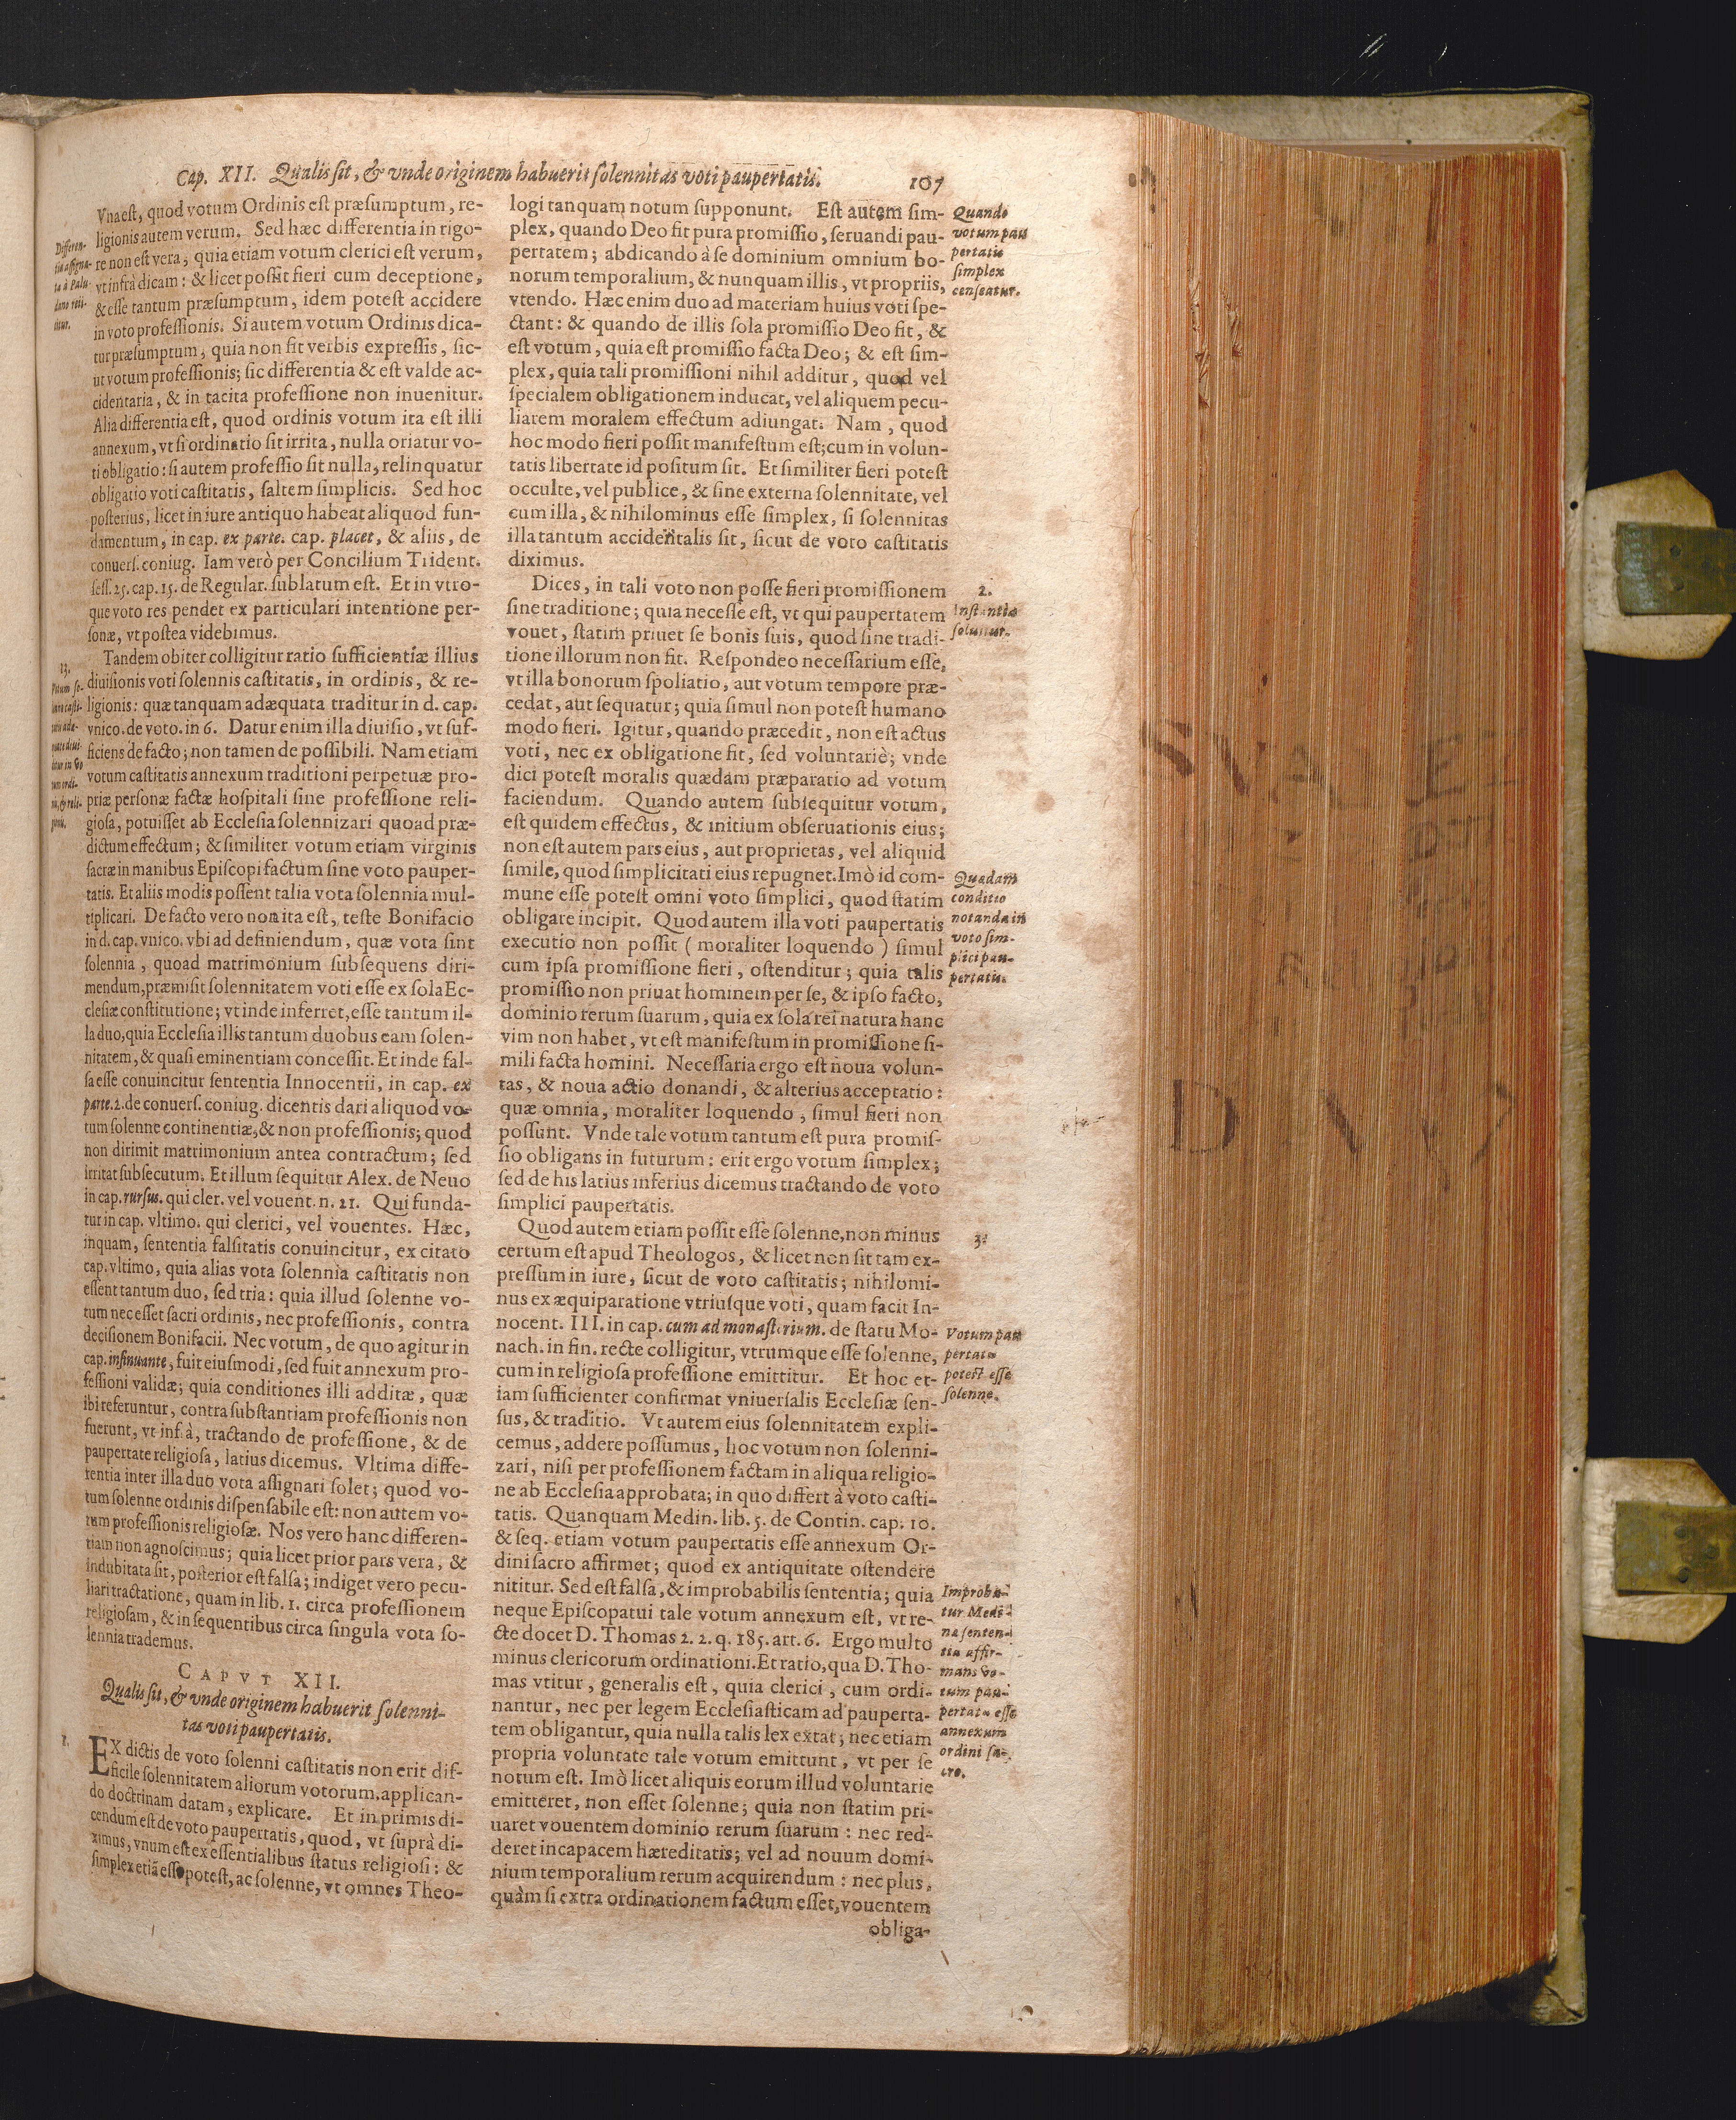 Cap. XII. Qualis sit, & vnde originem habuerit solennitas voti paupertatis. 107
Vna est, quod votum Ordinis est præsumptum, re-
ligionis autem verum. Sed hæc differentia in rigo-
re non est vera, quia etiam votum clerici est verum,
vt infrà dicam: & licet possit fieri cum deceptione,
& esse tantum præsumptum, idem potest accidere
in voto professionis. Si autem votum Ordinis dica-
tur præsumptum, quia non fit verbis expressis, sic-
ut votum professionis; sic differentia & est valde ac-
cidentaria, & in tacita professione non inuenitur.
Alia differentia est, quod ordinis votum ita est illi
annexum, vt si ordinatio sit irrita, nulla oriatur vo-
ti obligatio: si autem professio sit nulla, relinquatur
obligatio voti castitatis, saltem simplicis. Sed hoc
posterius, licet in iure antiquo habeat aliquod fun-
damentum, in cap. ex parte. cap. placet, & aliis, de
conuers. coniug. Iam verò per Concilium Trident.
sess. 25. cap. 15. de Regular. sublatum est. Et in vtro-
que voto res pendet ex particulari intentione per-
sonæ, vt postea videbimus.
Tandem obiter colligitur ratio sufficientiæ illius
diuisionis voti solennis castitatis, in ordinis, & re-
ligionis: quæ tanquam adæquata traditur in d. cap.
vnico. de voto. in 6. Datur enim illa diuisio, vt suf-
ficiens de facto; non tamen de possibili. Nam etiam
votum castitatis annexum traditioni perpetuæ pro-
priæ personæ factæ hospitali sine professione reli-
giosa, potuisset ab Ecclesia solennizari quoad præ-
dictum effectum; & similiter votum etiam virginis
sacræ in manibus Episcopi factum sine voto pauper-
tatis. Et aliis modis possent talia vota solennia mul-
tiplicari. De facto vero non ita est, teste Bonifacio
in d. cap. vnico. vbi ad definiendum, quæ vota sint
solennia, quoad matrimonium subsequens diri-
mendum, præmisit solennitatem voti esse ex sola Ec-
clesiæ constitutione; vt inde inferret, esse tantum il-
la duo, quia Ecclesia illis tantum duobus eam solen-
nitatem, & quasi eminentiam concessit. Et inde fal-
sa esse conuincitur sententia Innocentii, in cap. ex
parte. 2. de conuers. coniug. dicentis dari aliquod vo-
tum solenne continentiæ, & non professionis; quod
non dirimit matrimonium antea contractum; sed
irritat subsecutum. Et illum sequitur Alex. de Neuo
in cap. rursus. qui cler. vel vouent. n. 21. Qui funda-
tur in cap. vltimo. qui clerici, vel vouentes. Hæc,
inquam, sententia falsitatis conuincitur, ex citato
cap. vltimo, quia alias vota solennia castitatis non
essent tantum duo, sed tria: quia illud solenne vo-
tum nec esset sacri ordinis, nec professionis, contra
decisionem Bonifacii. Nec votum, de quo agitur in
cap. insinuante, fuit eiusmodi, sed fuit annexum pro-
fessioni validæ; quia conditiones illi additæ, quæ
ibi referuntur, contra substantiam professionis non
fuerunt, vt infrà, tractando de professione, & de
paupertate religiosa, latius dicemus. Vltima diffe-
rentia inter illa duo vota assignari solet; quod vo-
tum solenne ordinis dispensabile est: non autem vo-
tum professionis religiosæ. Nos vero hanc differen-
tiam non agnoscimus; quia licet prior pars vera, &
indubitata sit, posterior est falsa; indiget vero pecu-
liari tractatione, quam in lib. 1. circa professionem
religiosam, & in sequentibus circa singula vota so-
lennia trademus.
CAPVT XII.
Qualis sit, & vnde originem habuerit solenni-
tas voti paupertatis.
1.
EX dictis de voto solenni castitatis non erit dif-
ficile solennitatem aliorum votorum, applican-
do doctrinam datam, explicare. Et in primis di-
cendum est de voto paupertatis, quod, vt suprà di-
ximus, vnum est ex essentialibus status religiosi: &
simplex etiã esse potest, ac solenne, vt omnes Theo-
Differen-
tia assigna-
ta à Palu-
dano reii-
citur.
13.
Votum so-
lenne casti-
tatis adæ-
quate diui-
ditur in vo
tum ordi-
nis, & reli-
gionis.
logi tanquam notum supponunt. Est autem sim-
plex, quando Deo fit pura promissio, seruandi pau-
pertatem; abdicando à se dominium omnium bo-
norum temporalium, & nunquam illis, vt propriis,
vtendo. Hæc enim duo ad materiam huius voti spe-
ctant: & quando de illis sola promissio Deo fit, &
est votum, quia est promissio facta Deo; & est sim-
plex, quia tali promissioni nihil additur, quod vel
specialem obligationem inducat, vel aliquem pecu-
liarem moralem effectum adiungat. Nam, quod
hoc modo fieri possit manifestum est; cum in volun-
tatis libertate id positum sit. Et similiter fieri potest
occulte, vel publice, & sine externa solennitate, vel
cum illa, & nihilominus esse simplex, si solennitas
illa tantum accidentalis sit, sicut de voto castitatis
diximus.
Dices, in tali voto non posse fieri promissionem
sine traditione; quia necesse est, vt qui paupertatem
vouet, statim priuet se bonis suis, quod sine tradi-
tione illorum non fit. Respondeo necessarium esse,
vt illa bonorum spoliatio, aut votum tempore præ-
cedat, aut sequatur; quia simul non potest humano
modo fieri. Igitur, quando præcedit, non est actus
voti, nec ex obligatione fit, sed voluntariè; vnde
dici potest moralis quædam præparatio ad votum
faciendum. Quando autem subsequitur votum,
est quidem effectus, & initium obseruationis eius;
non est autem pars eius, aut proprietas, vel aliquid
simile, quod simplicitati eius repugnet. Imò id com-
mune esse potest omni voto simplici, quod statim
obligare incipit. Quod autem illa voti paupertatis
executio non possit (moraliter loquendo) simul
cum ipsa promissione fieri, ostenditur; quia talis
promissio non priuat hominem per se, & ipso facto,
dominio rerum suarum, quia ex sola rei natura hanc
vim non habet, vt est manifestum in promissione si-
mili facta homini. Necessaria ergo est noua volun-
tas, & noua actio donandi, & alterius acceptatio:
quæ omnia, moraliter loquendo, simul fieri non
possunt. Vnde tale votum tantum est pura promis-
sio obligans in futurum: erit ergo votum simplex;
sed de his latius inferius dicemus tractando de voto
simplici paupertatis.
Quod autem etiam possit esse solenne, non minus
certum est apud Theologos, & licet non sit tam ex-
pressum in iure, sicut de voto castitatis; nihilomi-
nus ex æquiparatione vtriusque voti, quam facit In-
nocent. III. in cap. cum ad monasterium. de statu Mo-
nach. in fin. recte colligitur, vtrumque esse solenne,
cum in religiosa professione emittitur. Et hoc et-
iam sufficienter confirmat vniuersalis Ecclesiæ sen-
sus, & traditio. Vt autem eius solennitatem expli-
cemus, addere possumus, hoc votum non solenni-
zari, nisi per professionem factam in aliqua religio-
ne ab Ecclesia approbata; in quo differt à voto casti-
tatis. Quanquam Medin. lib. 5. de Contin. cap. 10.
& seq. etiam votum paupertatis esse annexum Or-
dini sacro affirmet; quod ex antiquitate ostendere
nititur. Sed est falsa, & improbabilis sententia; quia
neque Episcopatui tale votum annexum est, vt re-
cte docet D. Thomas 2. 2. q. 185. art. 6. Ergo multo
minus clericorum ordinationi. Et ratio, qua D. Tho-
mas vtitur, generalis est, quia clerici, cum ordi-
nantur, nec per legem Ecclesiasticam ad pauperta-
tem obligantur, quia nulla talis lex extat; nec etiam
propria voluntate tale votum emittunt, vt per se
notum est. Imò licet aliquis eorum illud voluntarie
emitteret, non esset solenne; quia non statim pri-
uaret vouentem dominio rerum suarum: nec red-
deret incapacem hæreditatis; vel ad nouum domi-
nium temporalium rerum acquirendum: nec plus,
quàm si extra ordinationem factum esset, vouentem
obliga-
Quando
votum pau
pertatis
simplex
censeatur.
2.
Instantia
soluitur.
Quædam
conditio
notanda in
voto sim-
plici pau-
pertatis.
3.
Votum pau
pertatis
potest esse
solenne.
Improba-
tur Medi-
na senten-
tia affir-
mans vo-
tum pau-
pertatis esse
annexum
ordini sa-
cro.